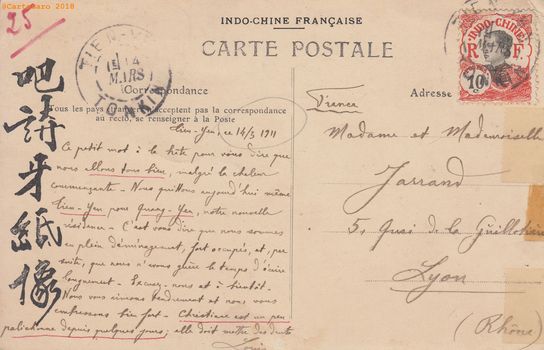 @Cartomaro 2018
25
INDO-CHINE FRANÇAISE
CARTE POSTALE
TIEN-YEN
14
MARS
TONKIN
INDO-CHINE
R F
10
Correspondance
Adresse
Tous les pays étrangers n'acceptent pas la correspondance
au recto, se renseigner à la Poste
Tien-Yen, ce 14/3 1911
Ce petit mot à la hâte pour vous dire que
nous allons tous bien, malgré la chaleur
commençante. Nous quittons aujourd'hui même
Tien-Yen pour Quang-Yen, notre nouvelle
résidence. C'est vous dire que nous sommes
en plein déménagement, fort occupés, et, par
suite, que nous n'avons guère le temps d'écrire
longuement. Excusez-nous et à bientôt.
Nous vous aimons tendrement et nous vous
embrassons bien fort. Christiane est un peu
palichonne depuis quelques jours; elle doit mettre des dents
Louis
France
Madame et Mademoiselle
Jarrand
5, Quai de la Guillotière
Lyon
(Rhône)
牙紙像